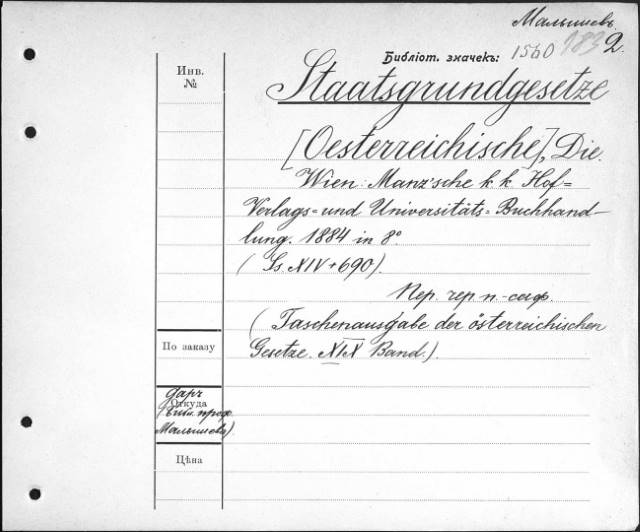 Малышевъ
Библіот. значекъ: 1560 183 2.
Инв.
№
Staatsgrundgesetze
[Oesterreichische], Die.
Wien: Manz'sche k. k. Hof=
Verlags= und Universitäts= Buchhand-
lung. 1884 in 8°
(Ss. XIV+690).
Пер. чер. п.-саф.
(Taschenausgabe der österreichischen
Gesetze. XIX Band.).
По заказу
Даръ
Откуда
(библ. проф.
Малышева)
Цѣна